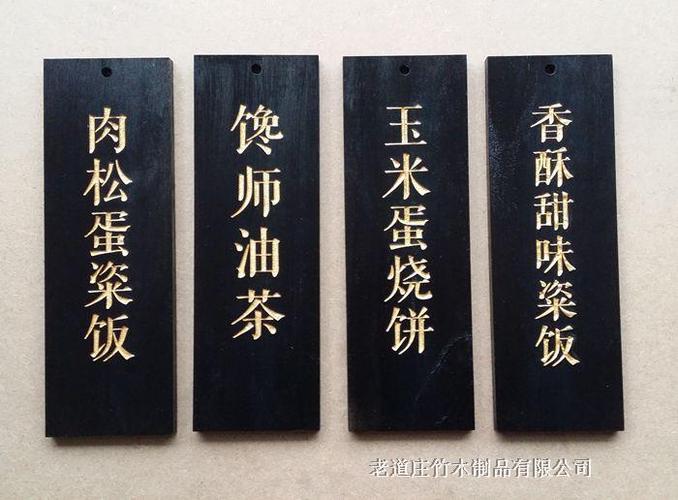 肉松蛋粢饭
馋师油茶
玉米蛋烧饼
香酥甜味粢饭
老道庄竹木制品有限公司